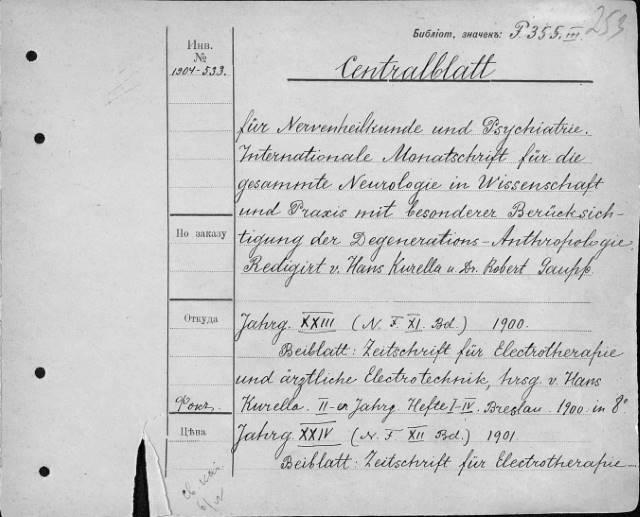 Библіот, значекъ: P. 355. III. 253
Инв.
№
1904-533.
Centralblatt
für Nervenheilkunde und Psychiatrie.
Internationale Monatschrift für die
gesammte Neurologie in Wissenschaft
und Praxis mit besonderer Berücksich-
По заказу
tigung der Degenerations-Anthropologie.
Redigirt v. Hans Kurella u. Dr. Robert Gaupp.
Откуда
Jahrg. XXIII (N. F. XI. Bd.) 1900.
Beiblatt: Zeitschrift für Electrotherapie
und ärztliche Electrotechnik, hrsg. v. Hans
Kurella. II-er Jahrg. Hefte I-IV. Breslau. 1900. in 8°.
Цѣна
Jahrg. XXIV (N. F. XII Bd.) 1901.
Beiblatt: Zeitschrift für Electrotherapie